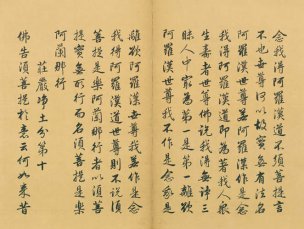 念我得阿羅漢道不須菩提言
不也世尊何以故實無有法名
阿羅漢世尊若阿羅漢作是念
我得阿羅漢道即為著我人眾
生壽者世尊佛說我得無諍三
昧人中最為第一是第一離欲
阿羅漢世尊我不作是念我是
離欲阿羅漢世尊我若作是念
我得阿羅漢道世尊則不說須
菩提是樂阿蘭那行者以須菩
提實無所行而名須菩提是樂
阿蘭那行
莊嚴淨土分第十
佛告須菩提於意云何如來昔